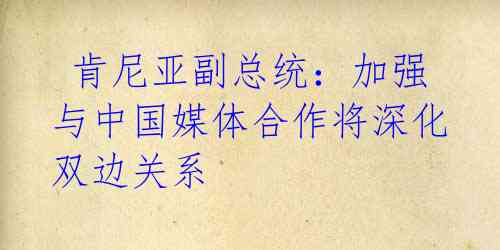 肯尼亚副总统：加强
与中国媒体合作将深化
双边关系